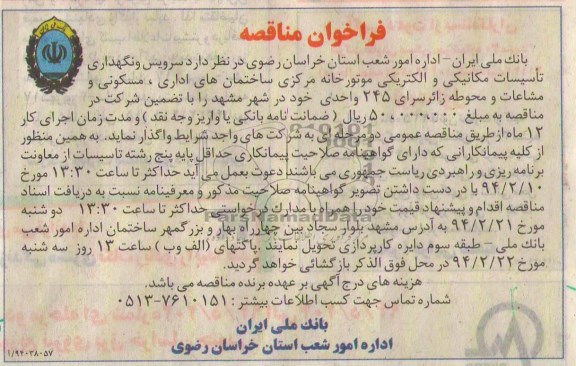 فراخوان مناقصه
بانک ملی ایران - اداره امور شعب استان خراسان رضوی در نظر دارد سرویس ونگهداری
تأسیسات مکانیکی و الکتریکی موتورخانه مرکزی ساختمان های اداری ، مسکونی و
مشاعات و محوطه زائرسرای ۲۴۵ واحدی خود در شهر مشهد را با تضمین شرکت در
مناقصه به مبلغ ۵۰،۰۰۰،۰۰۰ ریال ( ضمانت نامه بانکی یا واریز وجه نقد ) و مدت زمان اجرای کار
۱۲ ماه ازطریق مناقصه عمومی دو مرحله ای به شرکت های واجد شرایط واگذار نماید. به همین منظور
از کلیه پیمانکارانی که دارای گواهینامه صلاحیت پیمانکاری حداقل پایه پنج رشته تاسیسات از معاونت
برنامه ریزی و راهبردی ریاست جمهوری می باشند دعوت بعمل می آید حداکثر تا ساعت ۱۳:۳۰ مورخ
۹۴/۲/۱۰ با در دست داشتن تصویر گواهینامه صلاحیت مذکور و معرفینامه نسبت به دریافت اسناد
مناقصه اقدام و پیشنهاد قیمت خود را همراه با مدارک درخواستی حداکثر تا ساعت ۱۳:۳۰ دو شنبه
مورخ ۹۴/۲/۲۱ به آدرس مشهد بلوار سجاد بین چهارراه بهار و بزرگمهر ساختمان اداره امور شعب
بانک ملی - طبقه سوم دایره کارپردازی تحویل نمایند .پاکتهای (الف وب ) ساعت ۱۳ روز سه شنبه
مورخ ۹۴/۲/۲۲ در محل فوق الذکر بازگشائی خواهد گردید.
هزینه های درج آگهی بر عهده برنده مناقصه می باشد.
شماره تماس جهت کسب اطلاعات بیشتر : ۰۵۱۳-۷۶۱۰۱۵۱
بانک ملی ایران
اداره امور شعب استان خراسان رضوی
۱/۹۴۰۳۸۰۵۷
ParsNamadData